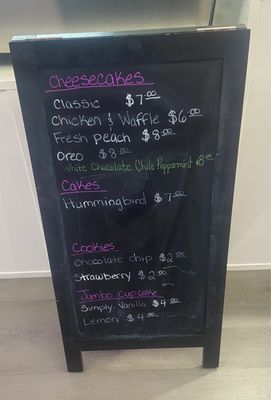 Cheesecakes
Classic $7.00
Chicken & Waffle $6.00
Fresh Peach $8.00
Oreo $8.00
White Chocolate Chile Peppermint $8.00
Cakes
Hummingbird $7.00
Cookies
Chocolate chip $2.00
Strawberry $2.00
Jumbo Cupcake
Simply Vanilla $4.00
Lemon $4.00